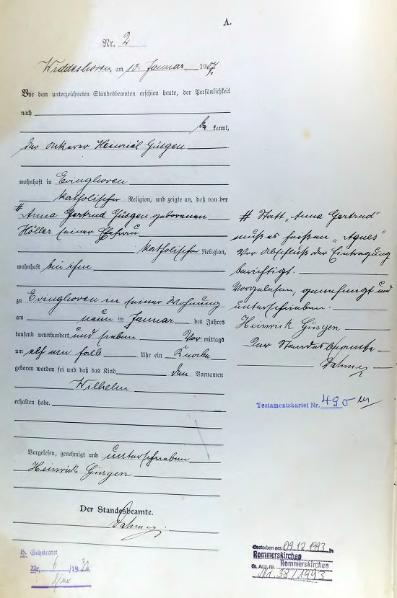 A.
Nr. 2
Widdeshoven, am 10. Januar 1907
Vor dem unterzeichneten Standesbeamten erschien heute, der Persönlichkeit
nach
be kannt,
der Ackerer Heinrich Giesgen
wohnhaft in Evinghoven
katholischer Religion, und zeigte an, daß von der
# Anna Gertrud Giesgen geborenen
Höller seiner Ehefrau
katholischer Religion,
wohnhaft bei ihm
zu Evinghoven in seiner Wohnung
am neun ten Januar des Jahres
tausend neunhundert und sieben Vor mittags
um elf ein halb Uhr ein Knabe
geboren worden sei und daß das Kind den Vornamen
Wilhelm
erhalten habe.
Vorgelesen, genehmigt und unterschrieben
Heinrich Giesgen
Der Standesbeamte.
# Statt „Anna Gertrud“
muß es heißen „Agnes“
Vor Abschluß der Eintragung
berichtigt.
Vorgelesen, genehmigt und
unterschrieben.
Heinrich Giesgen
Der Standesbeamte
Testamentskartei Nr. 490
Gestorben am 09.12.1993 in
Rommerskirchen
St. Amt Rommerskirchen
Nr. 38/1993